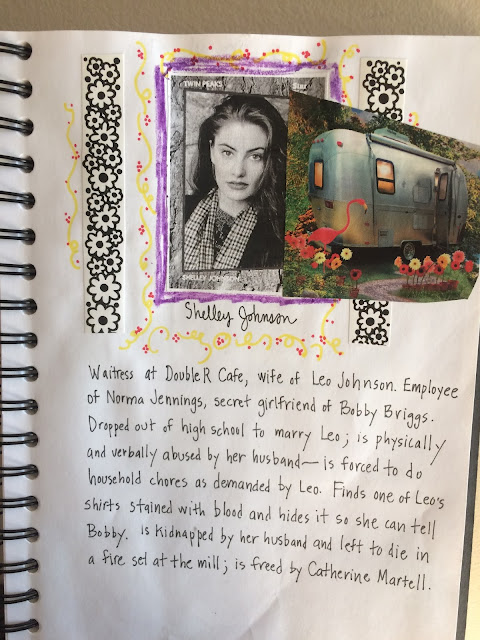 TWIN PEAKS
Shelley Johnson
Waitress at Double R Cafe, wife of Leo Johnson. Employee
of Norma Jennings, secret girlfriend of Bobby Briggs.
Dropped out of high school to marry Leo; is physically
and verbally abused by her husband — is forced to do
household chores as demanded by Leo. Finds one of Leo's
shirts stained with blood and hides it so she can tell
Bobby. is kidnapped by her husband and left to die in
a fire set at the mill; is freed by Catherine Martell.